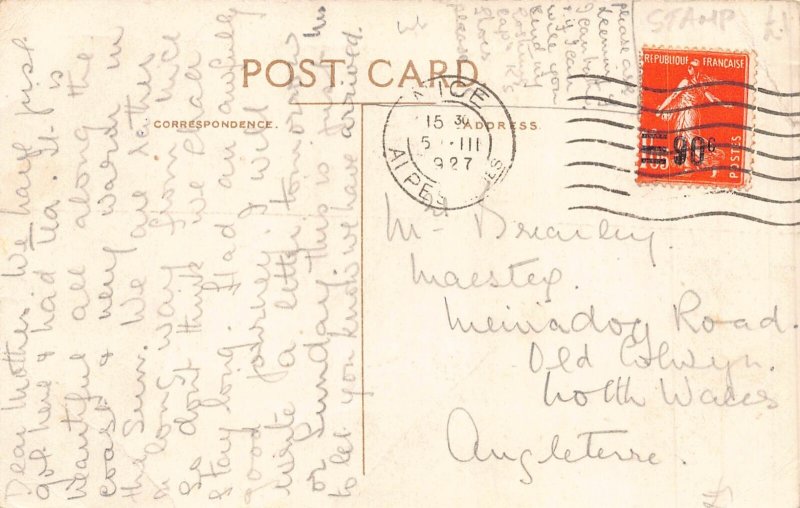 POST CARD
CORRESPONDENCE.
ADDRESS
Dear Mother We have just
got here & had tea. It is
beautiful all along the
coast & very warm in
the Sun. We are rather
a long way from Nice
so dont think we shall
stay long. Had an awfully
good journey. I will
write a letter to-morrow
or Sunday, this is just
to let you know we have arrived.
STAMP
NICE
15 30
5 III
927
ALPES
REPUBLIQUE FRANÇAISE
90c
POSTES
Mr Brierley.
Maesteg.
Meiriadog Road.
Old Colwyn.
North Wales
Angleterre.